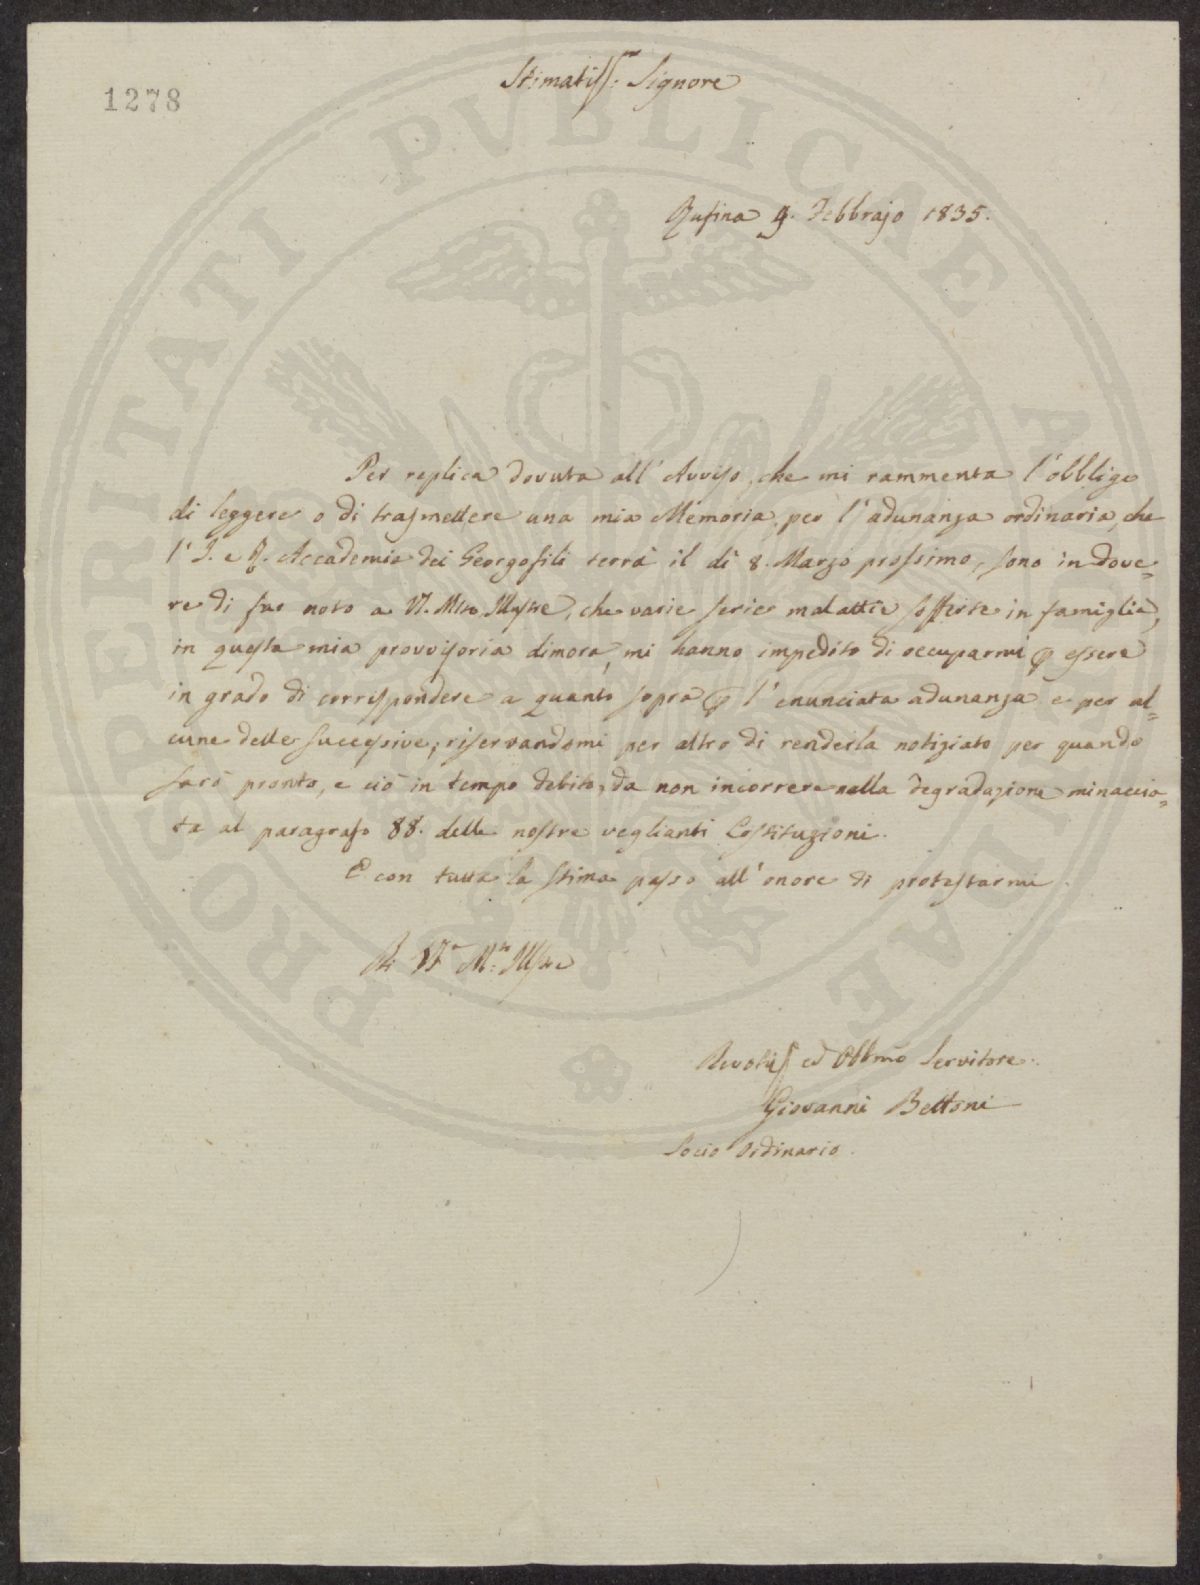 1278
Stimatiss: Signore
Rufina 9. Febbrajo 1835.
Per replica dovuta all'Avviso, che mi rammenta l'obbligo
di leggere o di trasmettere una mia Memoria, per l'adunanza ordinaria, che
l'I. e R. Accademia dei Georgofili terrà il dì 8. Marzo prossimo, sono in dove=
re di far noto a VS. Mto Illustre, che varie serie malattie sofferte in famiglia,
in questa mia provvisoria dimora, mi hanno impedito di occuparmi p essere
in grado di corrispondere a quanto sopra p l'enunciata adunanza e per al=
cune delle successive; riservandomi per altro di renderla notiziato per quando
sarò pronto, e ciò in tempo debito, da non incorrere nella degradazione minaccia=
ta al paragrafo 88. delle nostre veglianti Costituzioni.
E con tutta la stima passo all'onore di protestarmi
Di VS. Mto: Illstre
Devotiss ed Obbmo Servitore
Giovanni Bettoni
Socio Ordinario.
PROSPERITATI PVBLICAE AVGENDAE